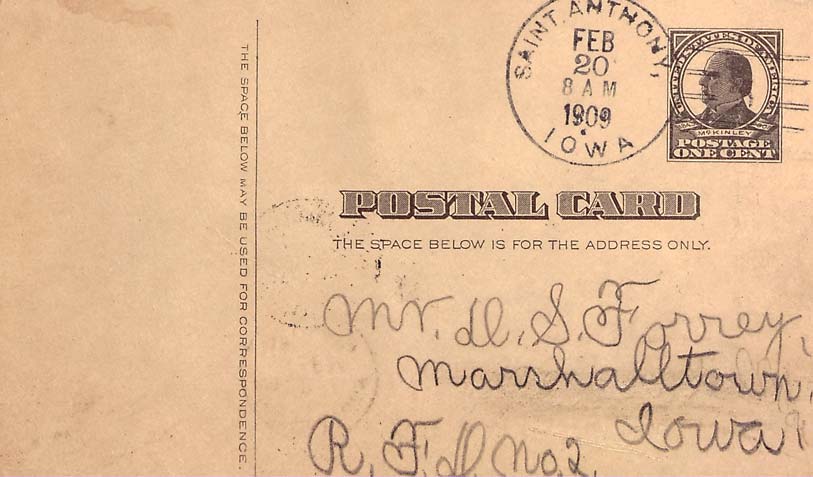 SAINT ANTHONY,
FEB
20
8 AM
1909
IOWA
UNITED STATES OF AMERICA
McKINLEY
POSTAGE
ONE CENT
THE SPACE BELOW MAY BE USED FOR CORRESPONDENCE.
POSTAL CARD
THE SPACE BELOW IS FOR THE ADDRESS ONLY.
Mr. D. S. Forrey,
Marshalltown,
Iowa
R. F. D. No. 2.